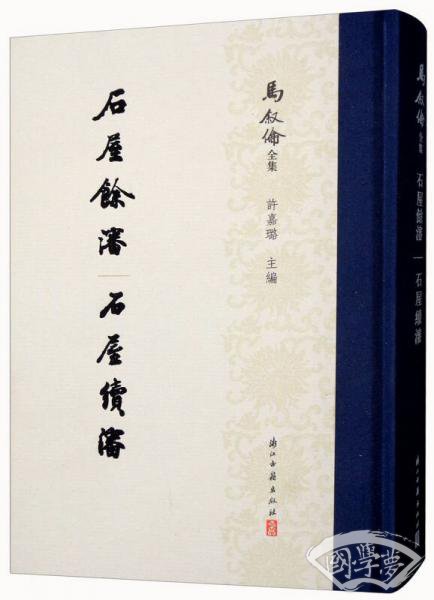 馬叙倫
全集
許嘉璐 主編
石屋餘瀋
石屋續瀋
浙江古籍出版社
馬叙倫
全集
石屋餘瀋|石屋續瀋
浙江古籍出版社
國學夢